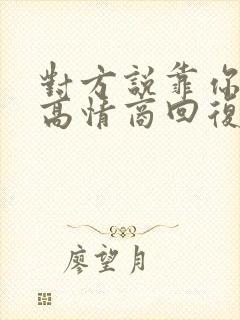 對方説靠你
高情商回復
廖望月